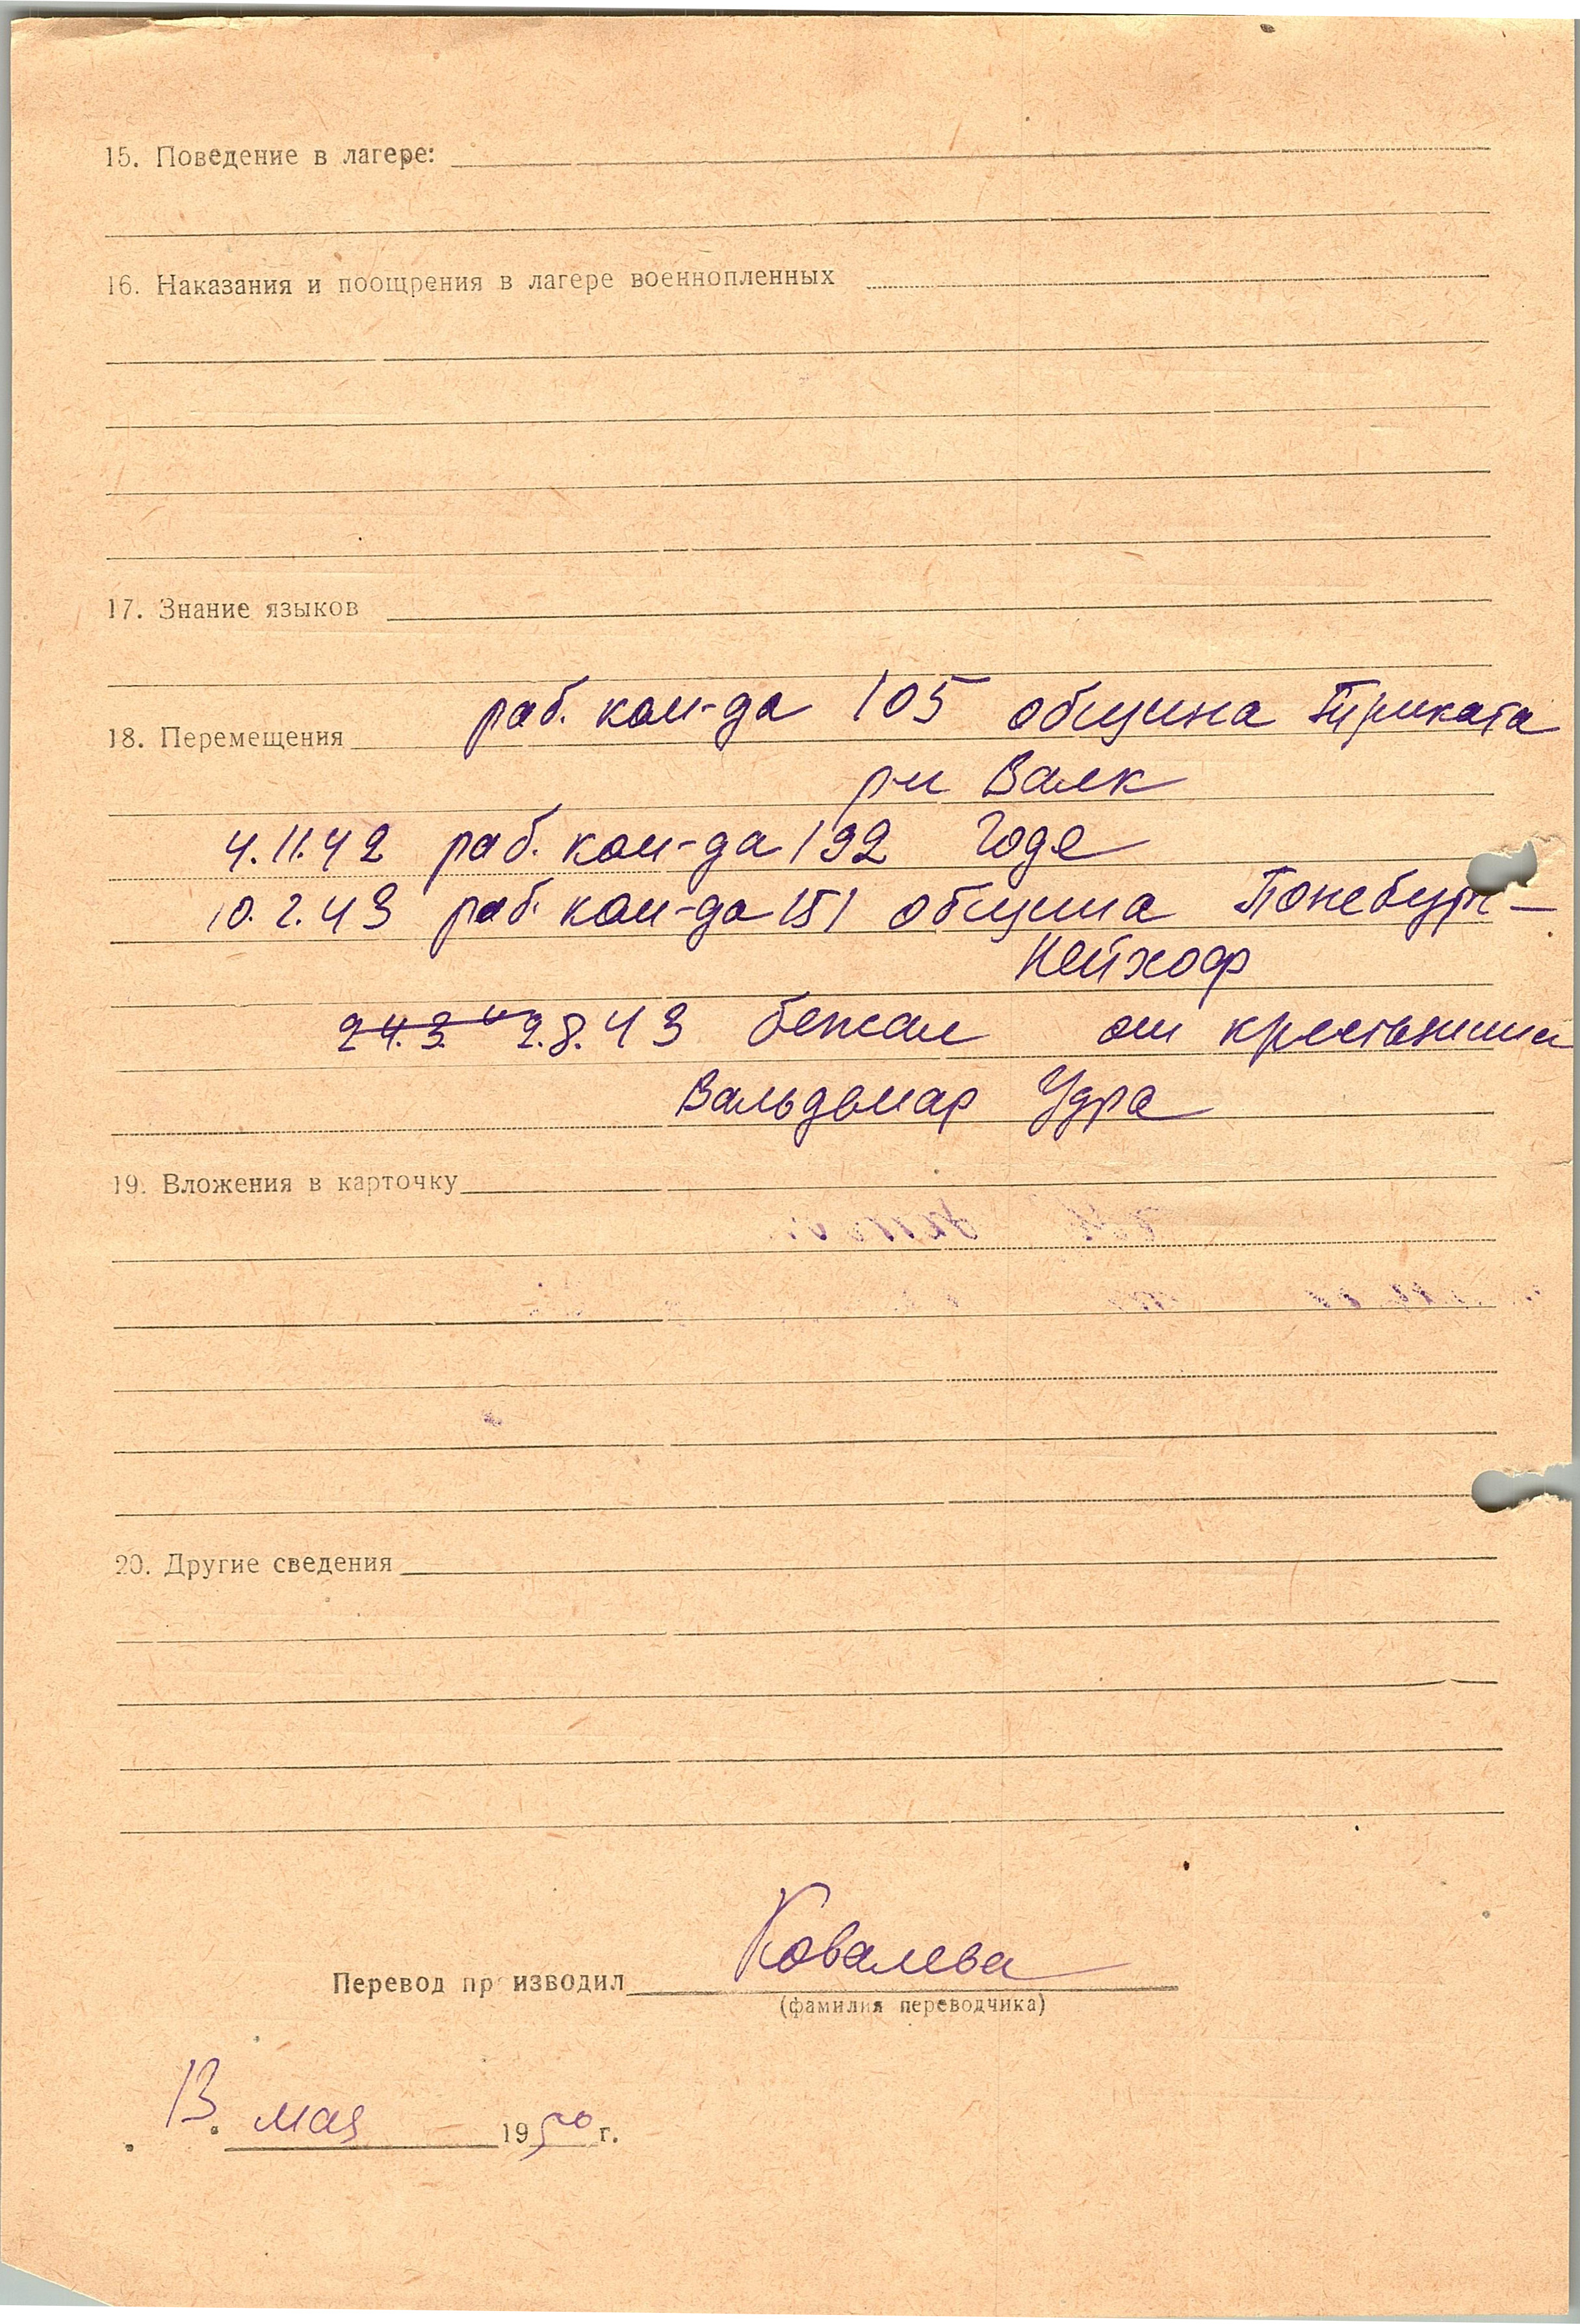 15. Поведение в лагере:
16. Наказания и поощрения в лагере военнопленных
17. Знание языков
раб. ком-да 105 община Триката
18. Перемещения
р-н Валк
4.11.42 раб. ком-да 192 Годе
10.2.43 раб. ком-да 151 община Понебург-
Нейхоф
24.3. 2.8.43 бежал от крестьянина
Вальдемар Удра
19. Вложения в карточку
20. Другие сведения
Ковалева
Перевод пр изводил
(фамилия переводчика)
13. мая 1950 г.